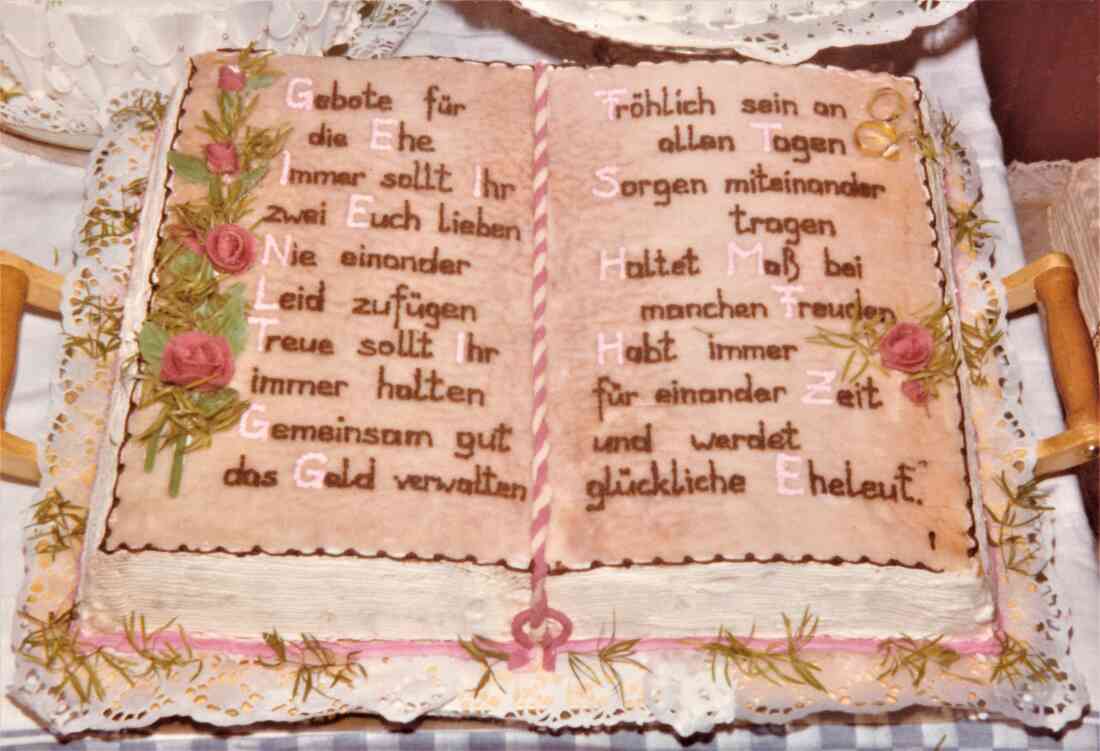 Gebote für
die Ehe
Immer sollt Ihr
zwei Euch lieben
Nie einander
Leid zufügen
Treue sollt Ihr
immer halten
Gemeinsam gut
das Geld verwalten
Fröhlich sein an
allen Tagen
Sorgen miteinander
tragen
Haltet Maß bei
manchen Freuden
Habt immer
für einander Zeit
und werdet
glückliche Eheleut.